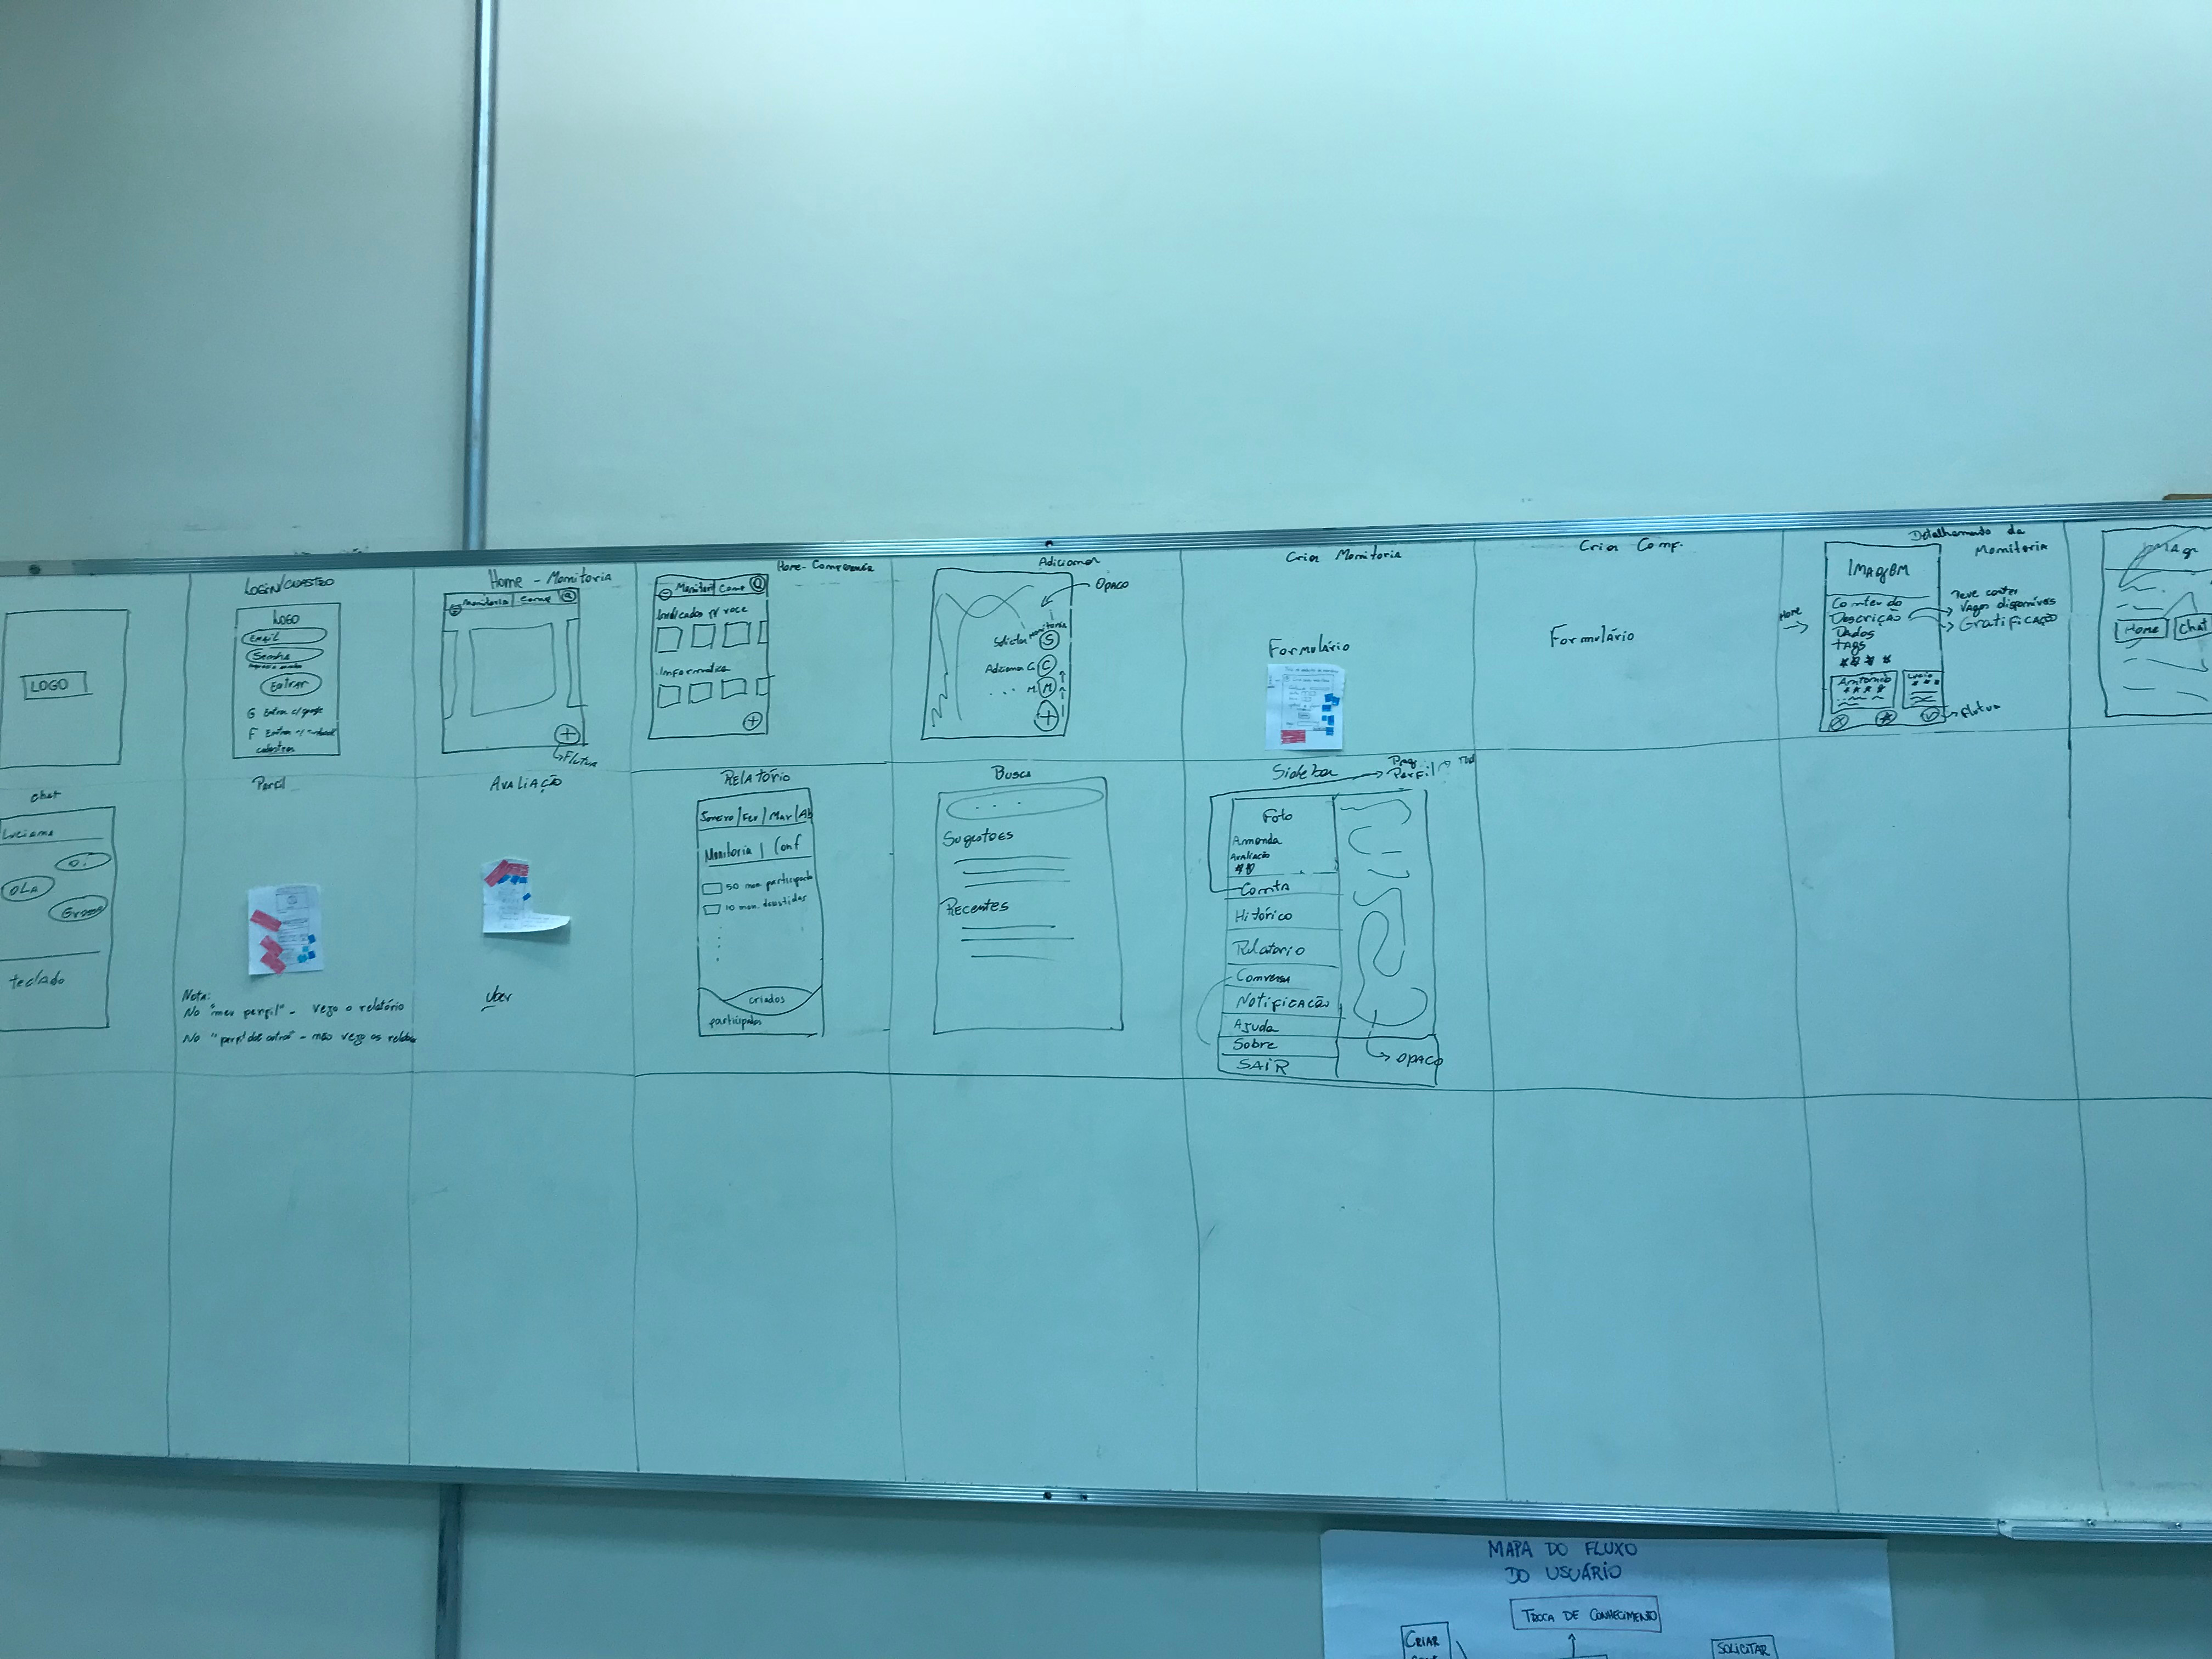 LOGO
LOGIN/CADASTRO
LOGO
Email
Senha
Entrar
G Entrar c/ google
F Entrar c/
cadastrar
Home - Monitoria
Monitoria | Conf
+
Flutua
Home-Conferência
Monitori | Conf
Indicados p/ você
Informática
+
Adicionar
Opaco
Solicitar Monitoria S
Adicionar C. C
... M. M
+
Cria Monitoria
Formulário
Cria Conf.
Formulário
Detalhamento da
Monitoria
Home
IMAgEM
Conteudo
Descrição
Dados
tags
Deve conter
Vagas disponíveis
Gratificação
Antonio
Lucio
Flutua
Home
Chat
Chat
Luciana
Oi
OLA
teclado
Perfil
Nota:
No "meu perfil" - vejo o relatório
No "perfil dos outros" - não vejo os relatór
AVALIAÇÃO
Uber
RELATÓRIO
Janeiro | Fev | Mar | Ab
Monitoria | Conf
50 mon. participada
10 mon. desistidas
criados
participados
Busca
...
Sugestões
Recentes
Sidebar
Perfil
Foto
Amanda
Avaliação
Conta
Hitórico
Relatorio
Conversa
Notificação
Ajuda
Sobre
SAIR
OPACO
MAPA DO FLUXO
DO USUÁRIO
TROCA DE CONHECIMENTO
CRIAR
SOLICITAR